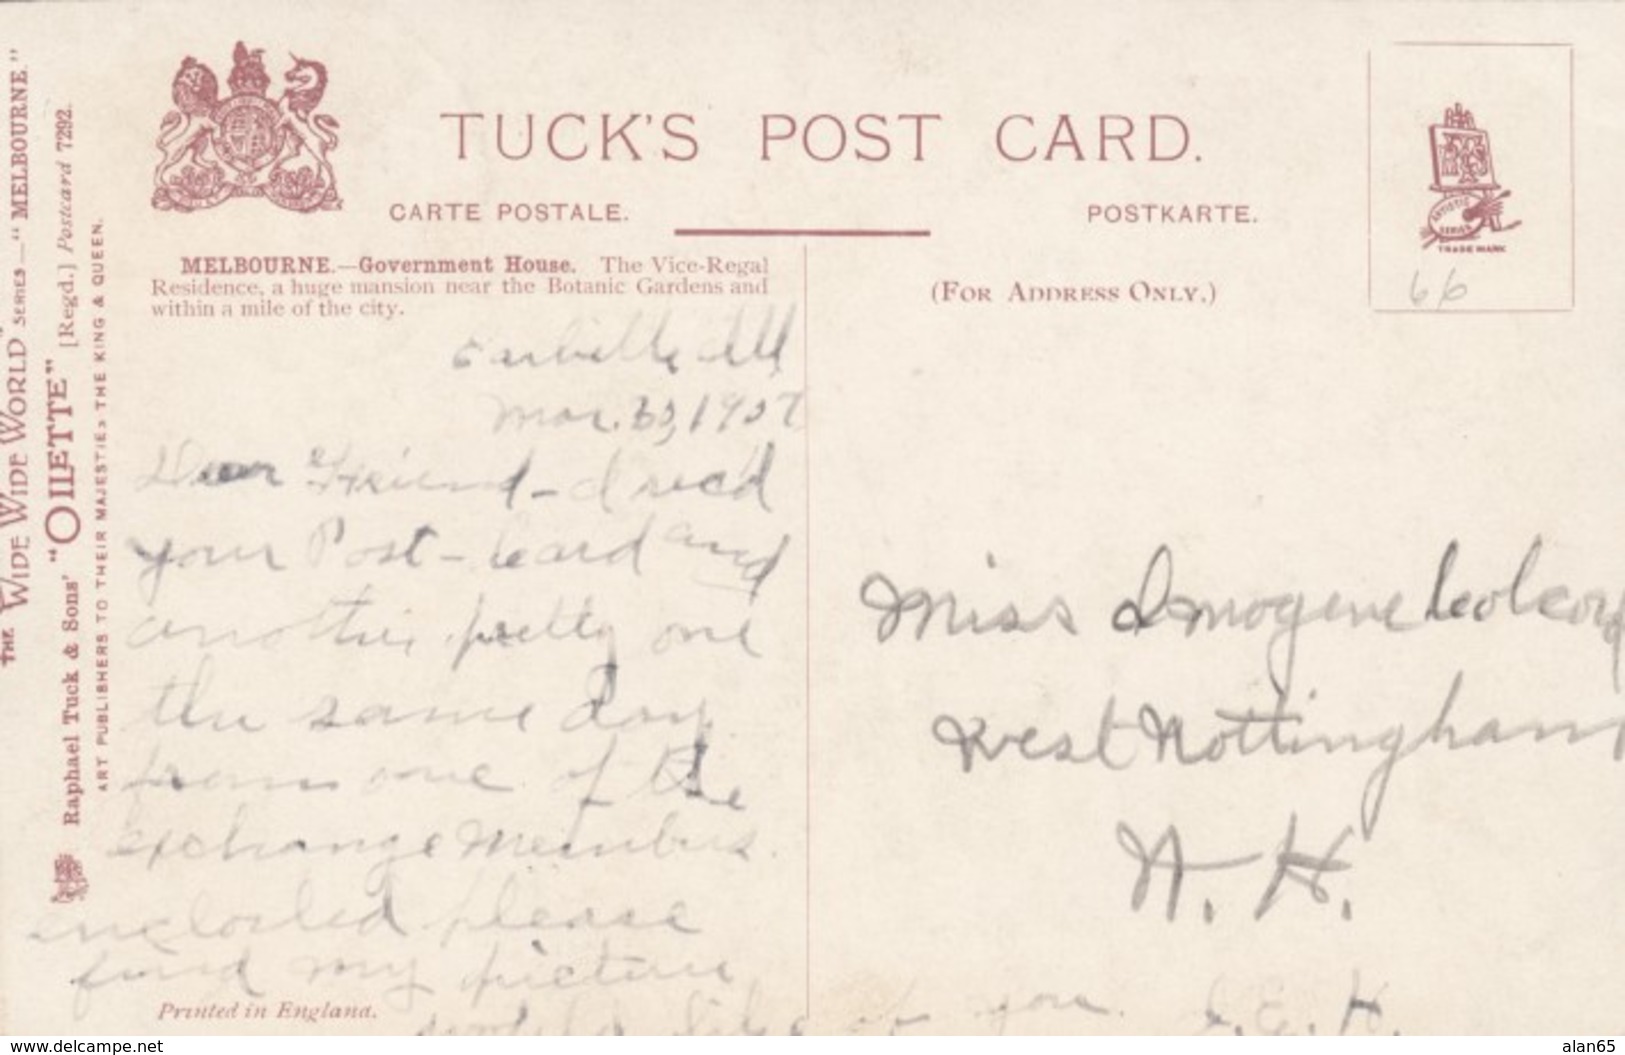 TUCK'S POST CARD.
CARTE POSTALE.
POSTKARTE.
MELBOURNE.—Government House. The Vice-Regal
Residence, a huge mansion near the Botanic Gardens and
within a mile of the city.
(FOR ADDRESS ONLY.)
ARTISTIC
SERIES
TRADE MARK
66
THE WIDE WIDE WORLD SERIES—"MELBOURNE."
Raphael Tuck & Sons' "OILETTE" [Regd.] Postcard 7292.
ART PUBLISHERS TO THEIR MAJESTIES THE KING & QUEEN.
Earlville Ill
Mar. 30, 1907
Dear Friend - I rec'd
your Post-Card and
another pretty one
the same day
from one of the
exchange Members.
enclosed please
find my picture
would like of you. I. E. H.
Miss Imogene Colcord
West Nottingham
N. H.
Printed in England.
www.delcampe.net
alan65